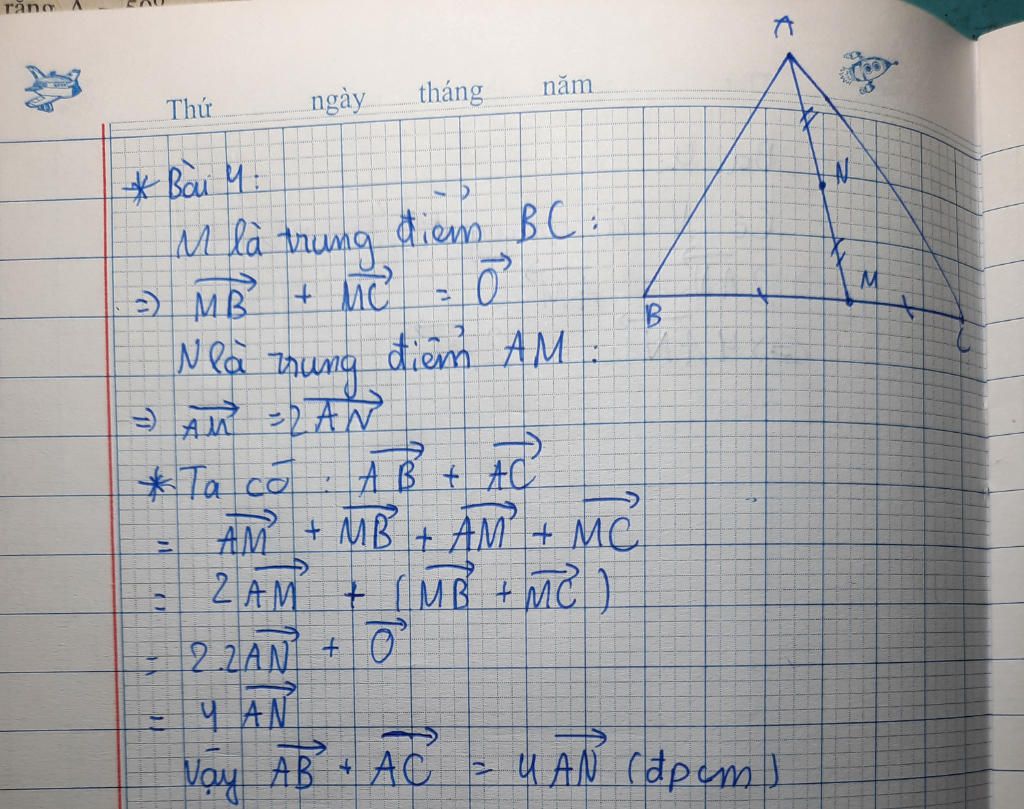 răng A
Thứ ngày tháng năm
* Bài 4:
M là trung điểm BC:
=> \overrightarrow{MB} + \overrightarrow{MC} = \overrightarrow{0}
N là trung điểm AM:
=> \overrightarrow{AM} = 2\overrightarrow{AN}
* Ta có: \overrightarrow{AB} + \overrightarrow{AC}
= \overrightarrow{AM} + \overrightarrow{MB} + \overrightarrow{AM} + \overrightarrow{MC}
= 2\overrightarrow{AM} + (\overrightarrow{MB} + \overrightarrow{MC})
= 2.2\overrightarrow{AN} + \overrightarrow{0}
= 4\overrightarrow{AN}
Vậy \overrightarrow{AB} + \overrightarrow{AC} = 4\overrightarrow{AN} (đpcm)
A
N
M
B
C